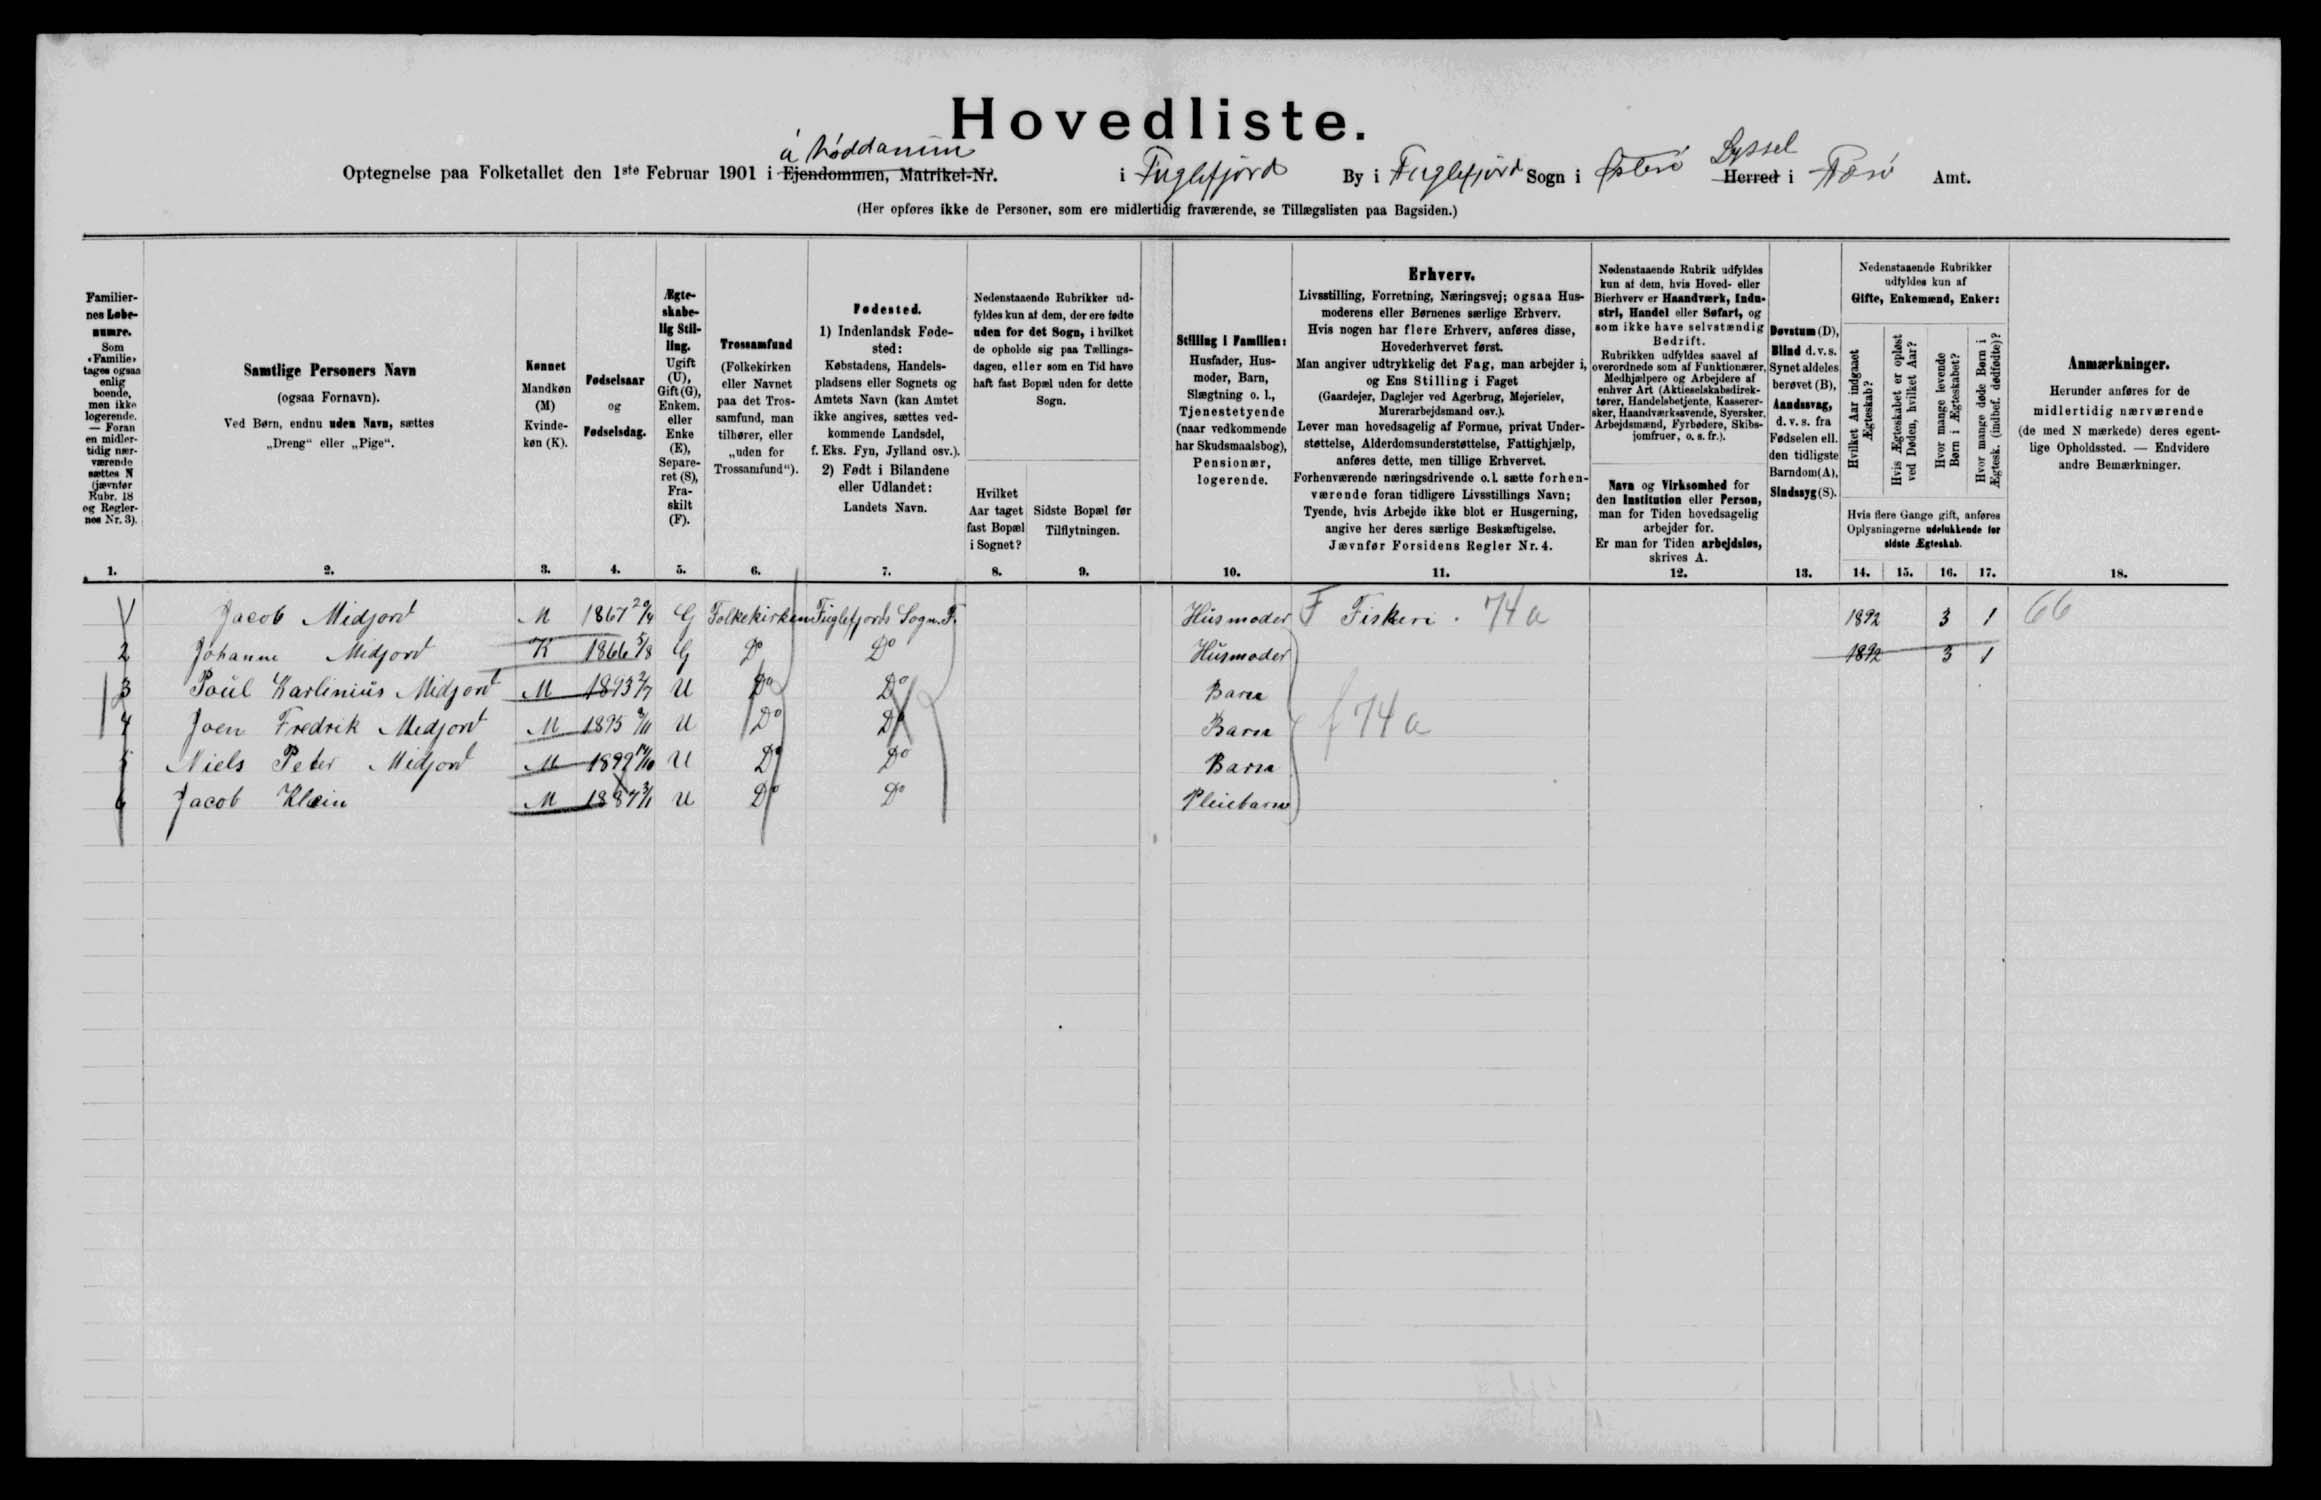 Hovedliste.
Optegnelse paa Folketallet den 1ste Februar 1901 i Ejendommen, Matrikel-Nr. i Fuglefjord By i Fuglefjord Sogn i Østerø Syssel Herred i Færø Amt.
(Her opføres ikke de Personer, som ere midlertidig fraværende, se Tillægslisten paa Bagsiden.)
Familier-
nes Løbe-
numre.
Som
«Familie»
tages ogsaa
enlig
boende,
men ikke
logerende.
— Foran
en midler-
tidig nær-
værende
sættes N
(jævnfør
Rubr. 18
og Regler-
nes Nr. 3).
Samtlige Personers Navn
(ogsaa Fornavn).
Ved Børn, endnu uden Navn, sættes
„Dreng“ eller „Pige“.
Kønnet
Mandkøn
(M)
Kvinde-
køn (K).
Fødselsaar
og
Fødselsdag.
Ægte-
skabe-
lig Stil-
ling.
Ugift
(U),
Gift (G),
Enkem.
eller
Enke
(E),
Separe-
ret (S),
Fra-
skilt
(F).
Trossamfund
(Folkekirken
eller Navnet
paa det Tros-
samfund, man
tilhører, eller
„uden for
Trossamfund“).
Fødested.
1) Indenlandsk Føde-
sted:
Købstadens, Handels-
pladsens eller Sognets og
Amtets Navn (kan Amtet
ikke angives, sættes ved-
kommende Landsdel,
f. Eks. Fyn, Jylland osv.).
2) Født i Bilandene
eller Udlandet:
Landets Navn.
Nedenstaaende Rubrikker ud-
fyldes kun af dem, der ere fødte
uden for det Sogn, i hvilket
de opholde sig paa Tællings-
dagen, eller som en Tid have
haft fast Bopæl uden for dette
Sogn.
Hvilket
Aar taget
fast Bopæl
i Sognet?
Sidste Bopæl før
Tilflytningen.
Stilling i Familien:
Husfader, Hus-
moder, Barn,
Slægtning o. l.,
Tjenestetyende
(naar vedkommende
har Skudsmaalsbog),
Pensionær,
logerende.
Erhverv.
Livsstilling, Forretning, Næringsvej; ogsaa Hus-
moderens eller Børnenes særlige Erhverv.
Hvis nogen har flere Erhverv, anføres disse,
Hovederhvervet først.
Man angiver udtrykkelig det Fag, man arbejder i,
og Ens Stilling i Faget
(Gaardejer, Daglejer ved Agerbrug, Mejerielev,
Murerarbejdsmand osv.).
Lever man hovedsagelig af Formue, privat Under-
støttelse, Alderdomsunderstøttelse, Fattighjælp,
anføres dette, men tillige Erhvervet.
Forhenværende næringsdrivende o. l. sætte forhen-
værende foran tidligere Livsstillings Navn;
Tyende, hvis Arbejde ikke blot er Husgerning,
angive her deres særlige Beskæftigelse.
Jævnfør Forsidens Regler Nr. 4.
Nedenstaaende Rubrik udfyldes
kun af dem, hvis Hoved- eller
Bierhverv er Haandværk, Indu-
stri, Handel eller Søfart, og
som ikke have selvstændig
Bedrift.
Rubrikken udfyldes saavel af
overordnede som af Funktionærer,
Medhjælpere og Arbejdere af
enhver Art (Aktieselskabsdirek-
tører, Handelsbetjente, Kasserer-
sker, Haandværkssvende, Syersker,
Arbejdsmænd, Fyrbødere, Skibs-
jomfruer, o. s. fr.).
Navn og Virksomhed for
den Institution eller Person,
man for Tiden hovedsagelig
arbejder for.
Er man for Tiden arbejdsløs,
skrives A.
Døvstum (D),
Blind d. v. s.
Synet aldeles
berøvet (B),
Aandssvag,
d. v. s. fra
Fødselen ell.
den tidligste
Barndom (A),
Sindssyg (S).
Nedenstaaende Rubrikker
udfyldes kun af
Gifte, Enkemænd, Enker:
Hvilket Aar indgaaet
Ægteskab?
Hvis Ægteskabet er opløst
ved Døden, hvilket Aar?
Hvor mange levende
Børn i Ægteskabet?
Hvor mange døde Børn i
Ægtesk. (indbef. dødfødte)?
Hvis flere Gange gift, anføres
Oplysningerne udelukkende for
sidste Ægteskab.
Anmærkninger.
Herunder anføres for de
midlertidig nærværende
(de med N mærkede) deres egent-
lige Opholdssted. — Endvidere
andre Bemærkninger.
1. 2. 3. 4. 5. 6. 7. 8. 9. 10. 11. 12. 13. 14. 15. 16. 17. 18.
1 Jacob Midjord M 1867 G Folkekirken Fuglefjords Sogn. F. Husmoder F Fiskeri. 74 a 1892 3 1 66
2 Johanne Midjord K 1866 5/8 G Do Do Husmoder 1892 3 1
3 Poul Karlinius Midjord M 1893 U Do Do Barn
4 Joen Fredrik Midjord M 1895 U Do Do Barn f 74 a
5 Niels Peter Midjord M U Do Do Barn
6 Jacob Klein M 1887 U Do Do Pleiebarn